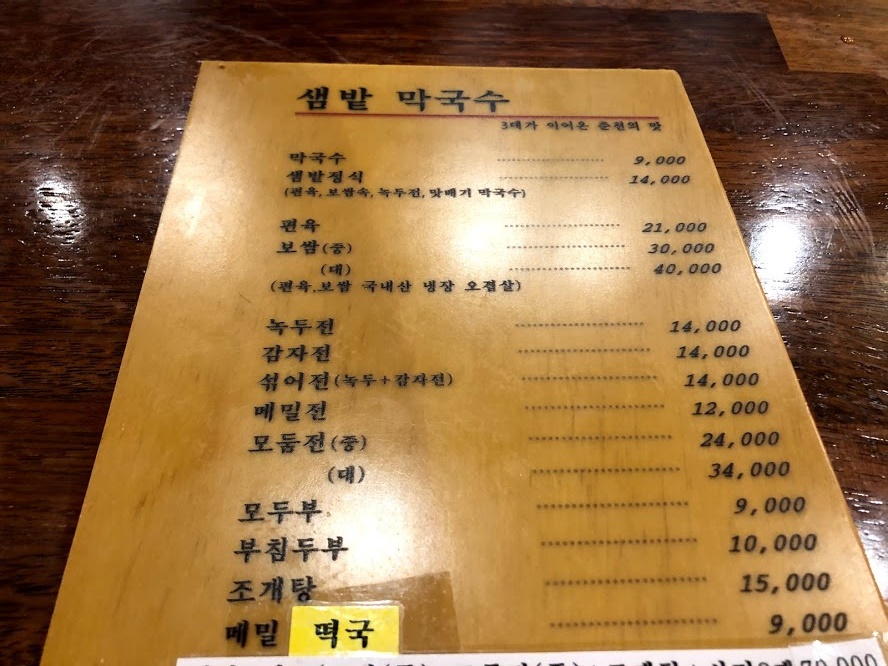 샘밭 막국수
3대가 이어온 춘천의 맛
막국수 9,000
샘밭정식 14,000
(편육,보쌈속,녹두전,맛배기 막국수)
편육 21,000
보쌈(중) 30,000
(대) 40,000
(편육,보쌈 국내산 냉장 오겹살)
녹두전 14,000
감자전 14,000
섞어전(녹두+감자전) 14,000
메밀전 12,000
모둠전(중) 24,000
(대) 34,000
모두부 9,000
부침두부 10,000
조개탕 15,000
메밀 떡국 9,000